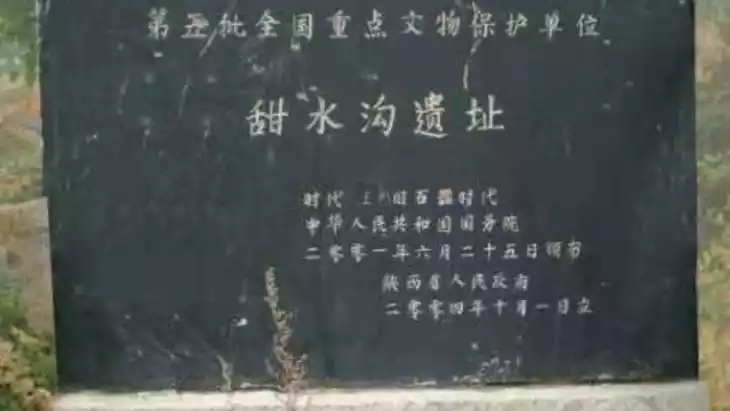 第五批全国重点文物保护单位
甜水沟遗址
时代 旧石器时代
中华人民共和国国务院
二零零一年六月二十五日颁布
陕西省人民政府
二零零四年十月一日立